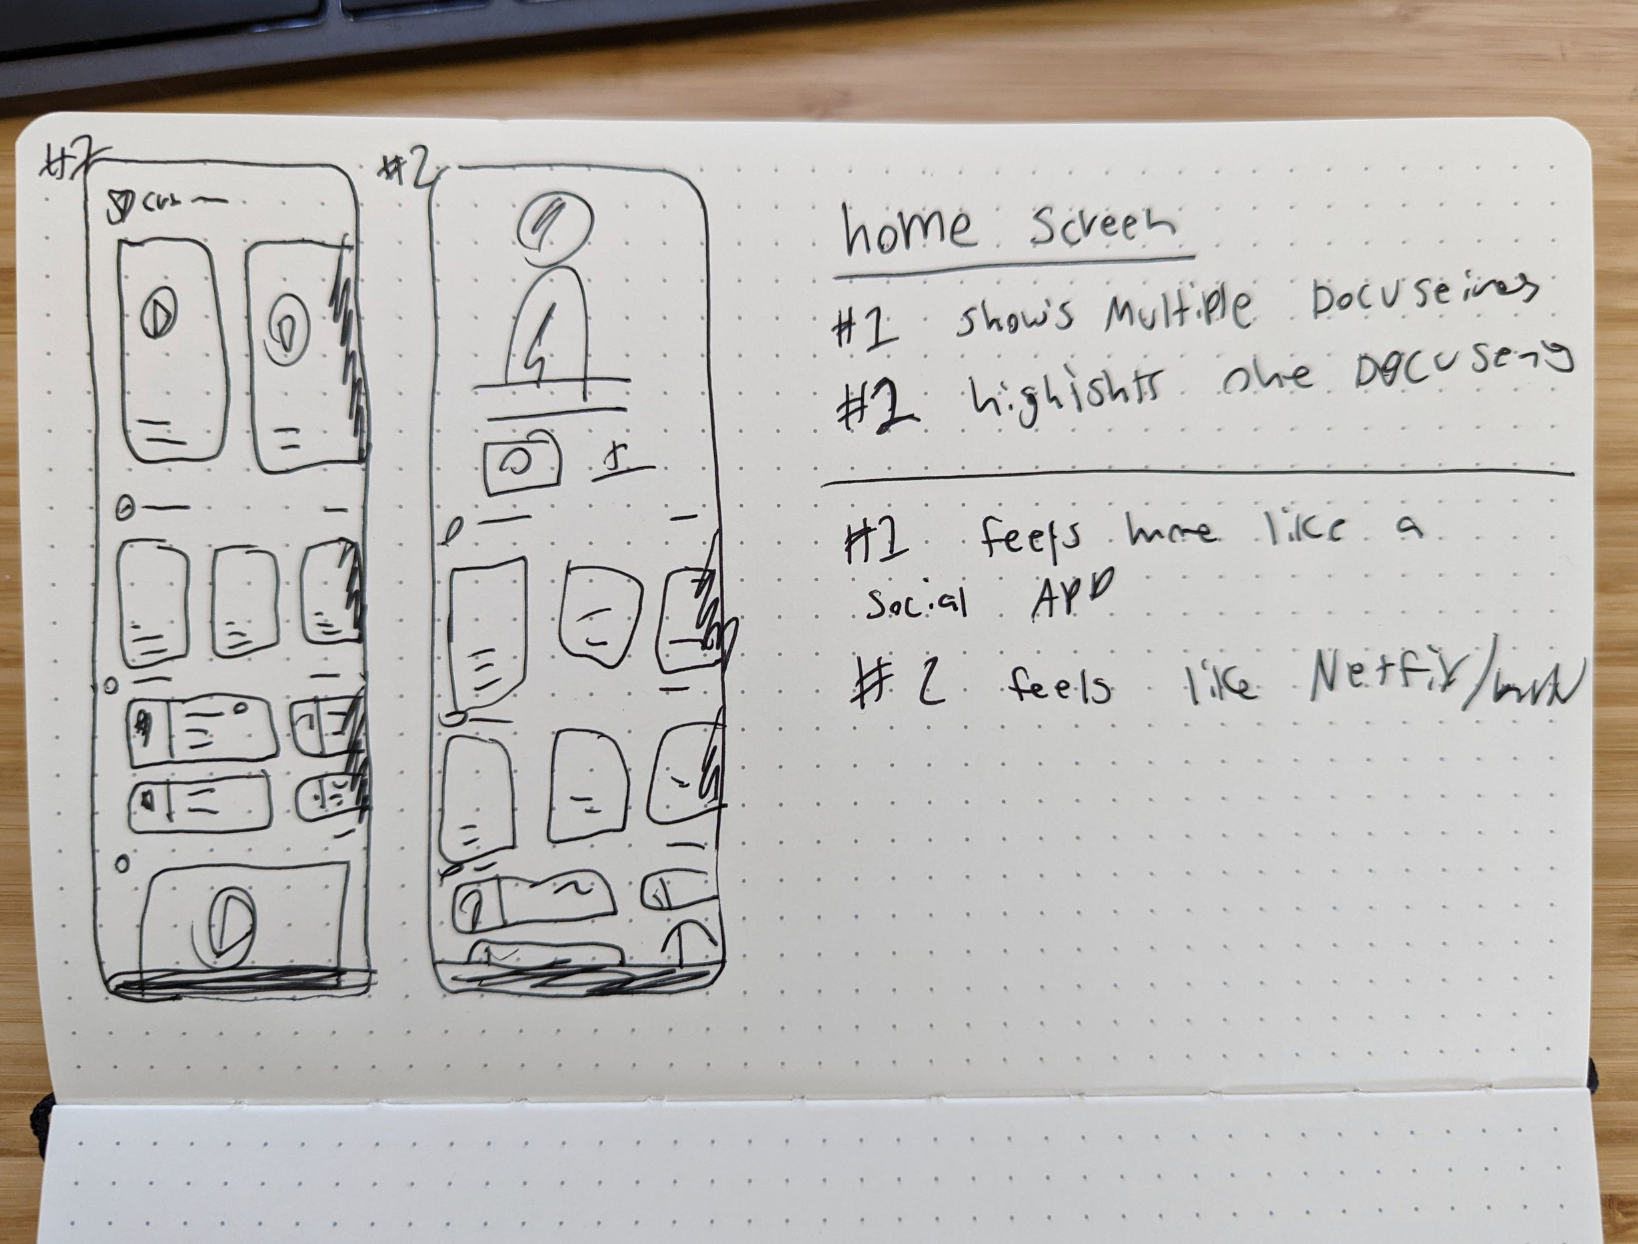 #1
#2
home screen
#1 shows Multiple Docuseires
#2 highlights one Docusery
#1 feels more like a
social APP
#2 feels like Netflix/